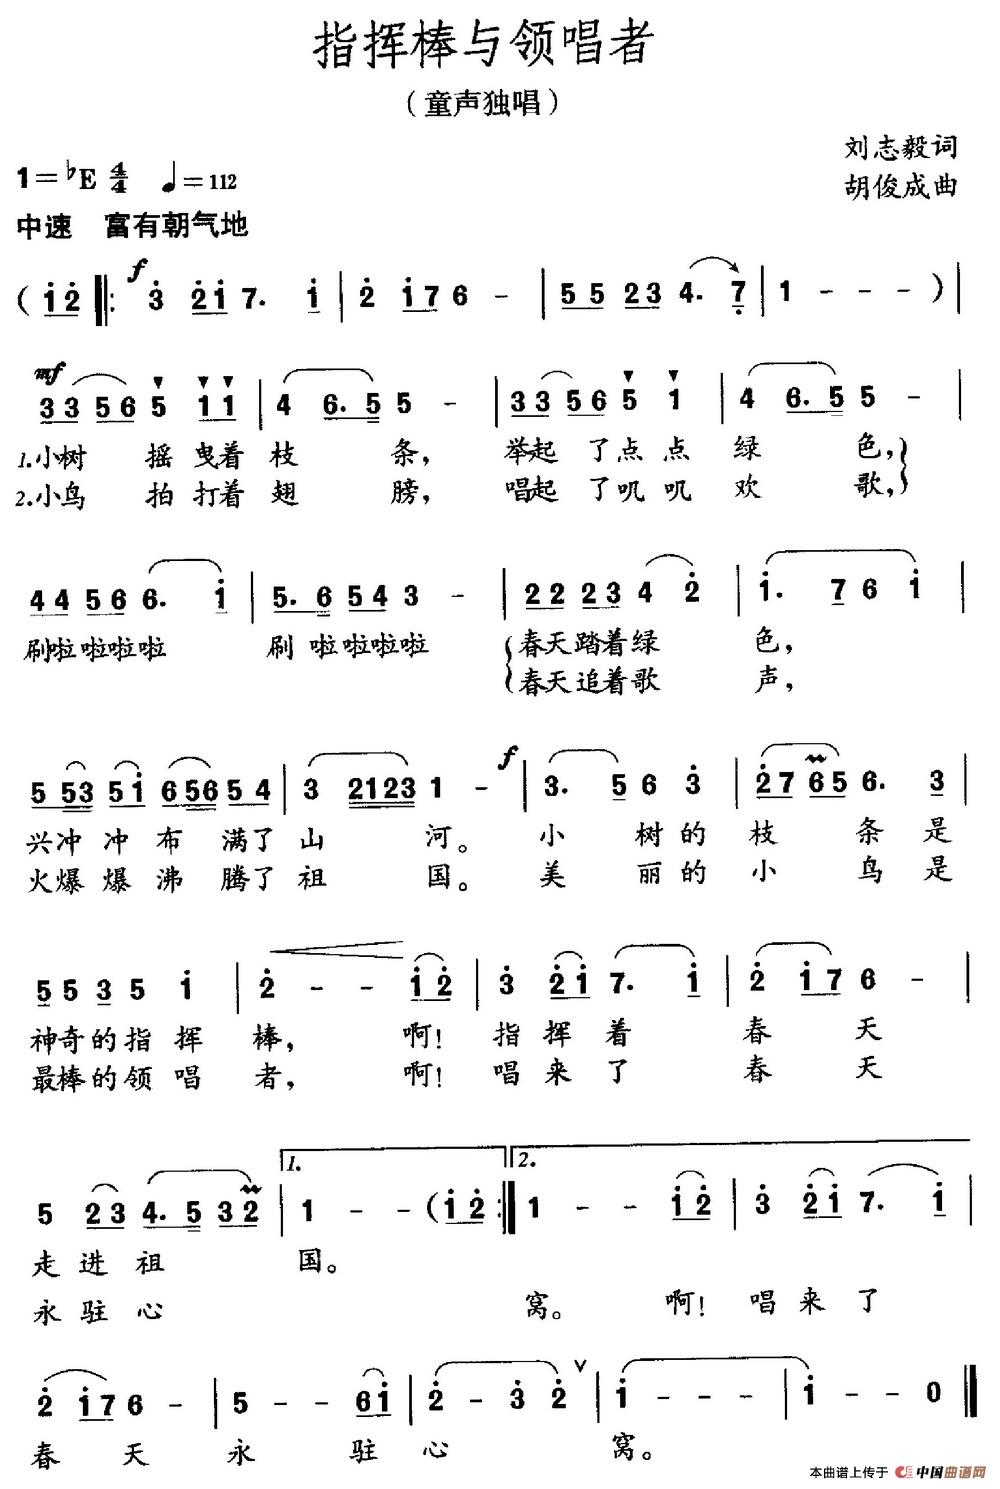 指挥棒与领唱者
（童声独唱）
刘志毅词
1=♭E 4/4 ♩=112
胡俊成曲
中速 富有朝气地
f
( i 2 ‖: 3 2 i 7. i | 2 i 7 6 - | 5 5 2 3 4. 7 | 1 - - - ) |
mf
3 3 5 6 5 1 1 | 4 6. 5 5 - | 3 3 5 6 5 1 | 4 6. 5 5 - |
1.小树 摇 曳着 枝 条, 举起 了点 点 绿 色,
2.小鸟 拍 打着 翅 膀, 唱起 了叽 叽 欢 歌,
4 4 5 6 6. i | 5. 6 5 4 3 - | 2 2 2 3 4 2 | i. 7 6 i |
刷啦啦啦啦 刷 啦啦啦啦 春天踏着绿 色,
春天追着歌 声,
f
5 5 3 5 i 6 5 6 5 4 | 3 2 1 2 3 1 - | 3. 5 6 3 | 2 7 6 5 6. 3 |
兴冲 冲 布 满了 山 河。 小 树的 枝 条是
火爆 爆 沸 腾了 祖 国。 美 丽的 小 鸟是
5 5 3 5 i | 2 - - i 2 | 3 2 i 7. i | 2 i 7 6 - |
神奇的指 挥 棒, 啊! 指 挥 着 春 天
最棒的领 唱 者, 啊! 唱 来 了 春 天
1. 2.
5 2 3 4. 5 3 2 | 1 - - ( i 2 :‖ 1 - - i 2 | 3 2 i 7. i |
走 进 祖 国。
永 驻 心 窝。 啊! 唱 来 了
2 i 7 6 - | 5 - - 6 i | 2 - 3 2 | i - - - | i - - 0 ‖
春 天 永 驻 心 窝。
本曲谱上传于 中国曲谱网